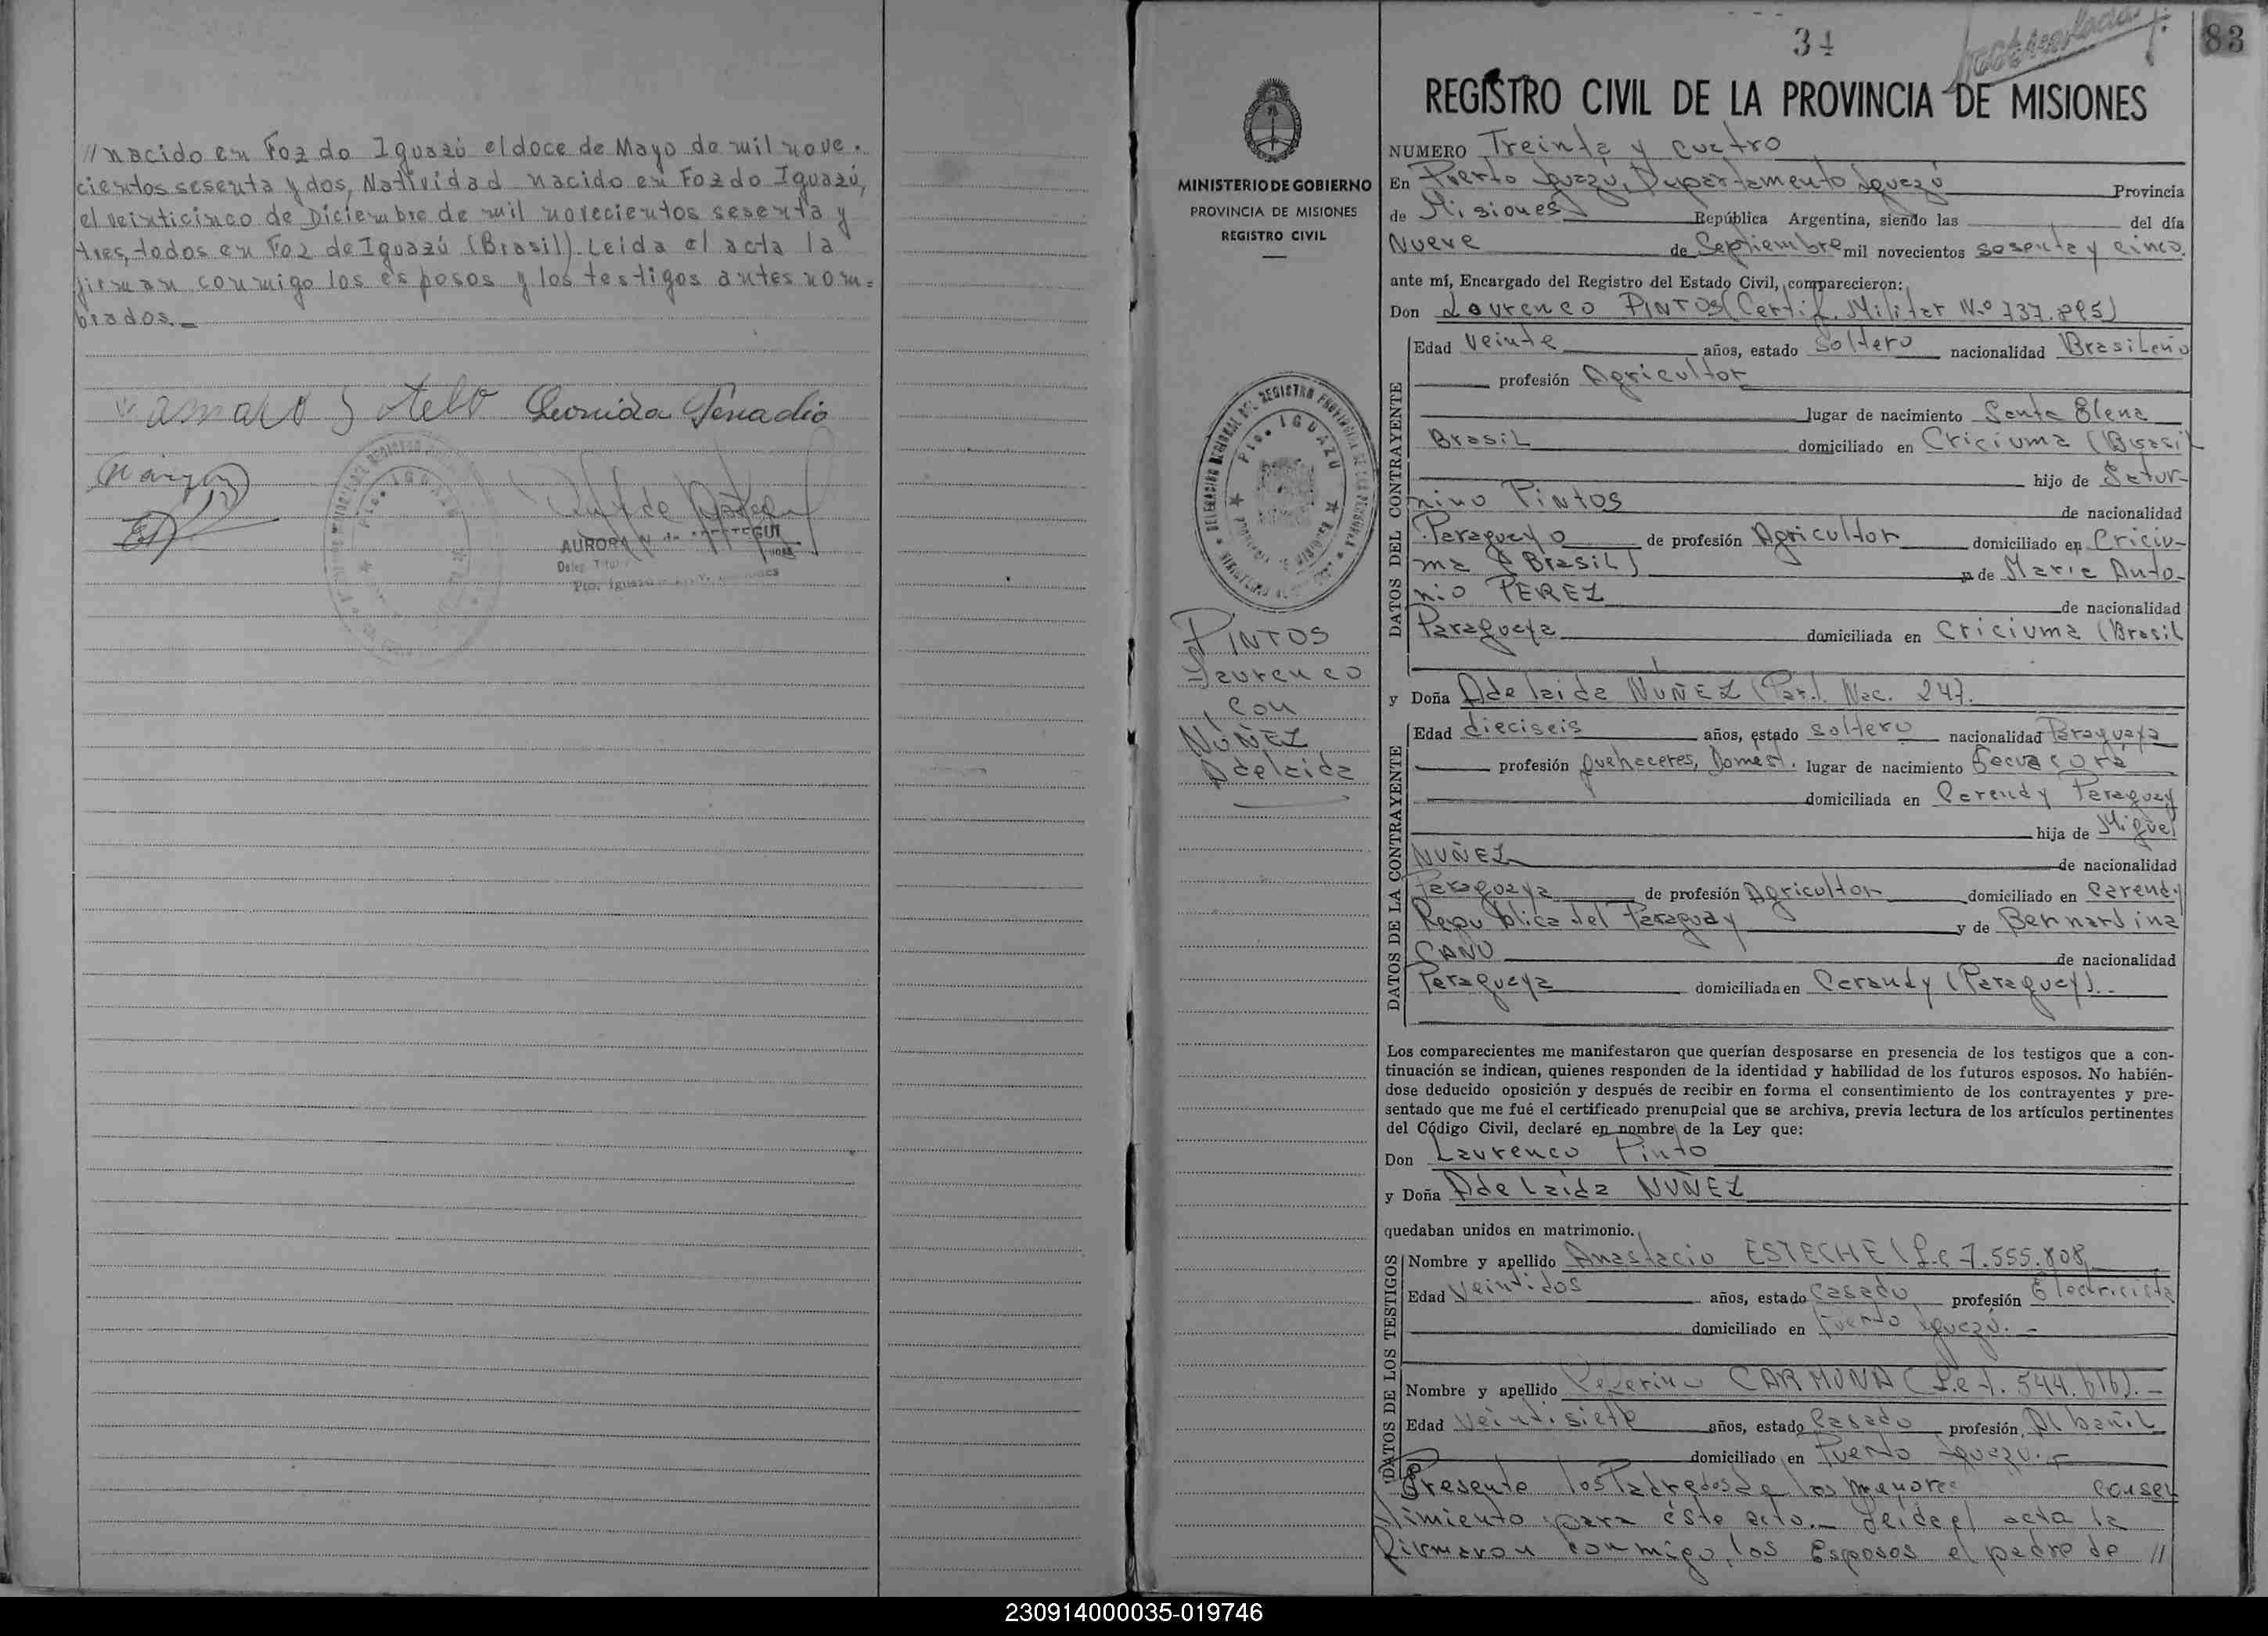 //nacido en Foz do Iguazú el doce de Mayo de mil nove.
cientos sesenta y dos, Natividad nacido en Foz do Iguazú,
el veinticinco de Diciembre de mil novecientos sesenta y
tres, todos en Foz de Iguazú (Brasil). Leida el acta la
firman conmigo los esposos y los testigos antes nom=
brados.-
Leonida Genadio
AURORA
Pto. Iguazú
34
83
REGISTRO CIVIL DE LA PROVINCIA DE MISIONES
MINISTERIO DE GOBIERNO
PROVINCIA DE MISIONES
REGISTRO CIVIL
PTO. IGUAZU
PINTOS
Laurenco
con
NUÑEZ
Adelaida
NUMERO Treinta y cuatro
En Puerto Iguazú, Departamento Iguazú Provincia
de Misiones República Argentina, siendo las del día
Nueve de Septiembre mil novecientos sesenta y cinco.
ante mí, Encargado del Registro del Estado Civil, comparecieron:
Don Laurenco PINTOS (Certif. Militar N.o 737.895)
DATOS DEL CONTRAYENTE
Edad Veinte años, estado Soltero nacionalidad Brasileño
profesión Agricultor
lugar de nacimiento Santa Elena
Brasil domiciliado en Criciuma (Brasil
hijo de Satur-
nino Pintos de nacionalidad
Paraguayo de profesión Agricultor domiciliado en Criciu-
ma (Brasil) y de Maria Anto-
nio PEREZ de nacionalidad
Paraguaya domiciliada en Criciuma (Brasil
y Doña Adelaida NUÑEZ (Part. Nac. 247.
DATOS DE LA CONTRAYENTE
Edad dieciseis años, estado soltero nacionalidad Paraguaya
profesión Quehaceres, Domest. lugar de nacimiento
domiciliada en Carendy Paraguay
hija de Miguel
NUÑEZ de nacionalidad
Paraguaya de profesión Agricultor domiciliado en Carendy
Republica del Paraguay y de Bernardina
CANO de nacionalidad
Paraguaya domiciliada en Carandy (Paraguay).-
Los comparecientes me manifestaron que querían desposarse en presencia de los testigos que a con-
tinuación se indican, quienes responden de la identidad y habilidad de los futuros esposos. No habién-
dose deducido oposición y después de recibir en forma el consentimiento de los contrayentes y pre-
sentado que me fué el certificado prenupcial que se archiva, previa lectura de los artículos pertinentes
del Código Civil, declaré en nombre de la Ley que:
Don Laurenco Pinto
y Doña Adelaida NUÑEZ
quedaban unidos en matrimonio.
DATOS DE LOS TESTIGOS
Nombre y apellido Anastacio ESTECHE (L.e 7.555.808)
Edad Veintidos años, estado Casado profesión Electricista
domiciliado en Puerto Iguazú.-
Nombre y apellido Ceferino CARMONA (L.e 7.544.616).-
Edad Veintisiete años, estado Casado profesión, Albañil
domiciliado en Puerto Iguazu.-
Presente los Padres de los menores consen
timiento para éste acto.- Leida el acta la
firmaron conmigo, los Esposos el padre de //
230914000035-019746